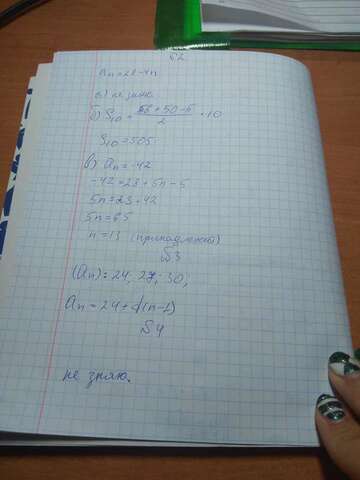 №2
an = 28-4n
а) не знаю.
б) S10 = 56+50-5/2 · 10
S10 = 505
в) an = -42
-42 = 23 + 5n - 5
5n = 23 + 42
5n = 65
n = 13 (принадлежит)
№3
(an): 24, 27, 30,
an = 24 + d(n-1)
№4
не знаю.